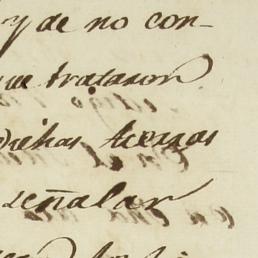 y de no con-
que trataron
dichas tierras
señalar